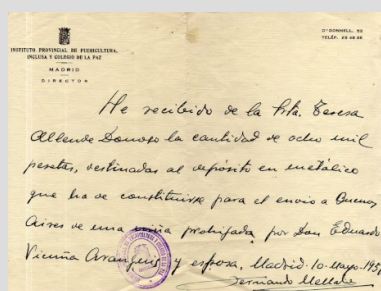 O'DONNELL, 52
TELÉF.
INSTITUTO PROVINCIAL DE PUERICULTURA,
INCLUSA Y COLEGIO DE LA PAZ
MADRID
DIRECTOR
He recibido de la Srta. Teresa
Allende Donoso la cantidad de ocho mil
pesetas, destinadas al depósito en metálico
que ha de constituirse para el envío a Buenos
Aires de una niña prohijada por Don Eduardo
Vicuña Aranguiz y esposa, Madrid 10. Mayo